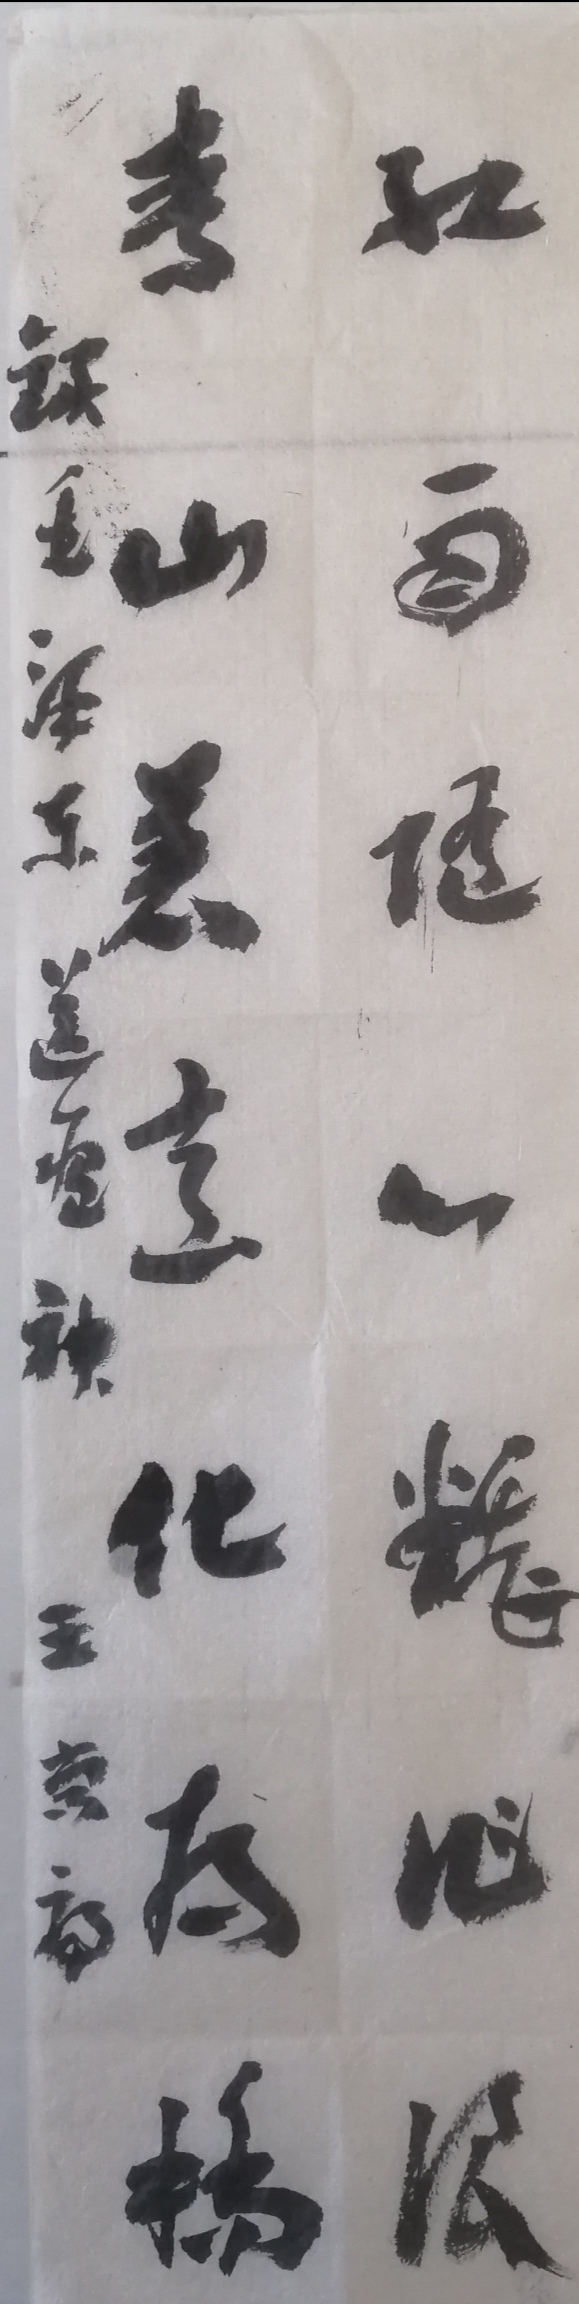 红雨随心翻作浪
青山着意化为桥
录毛泽东送瘟神 王